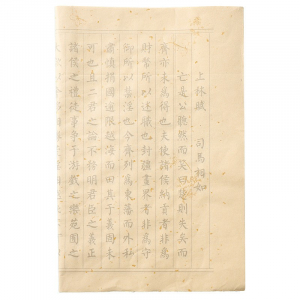 上林賦 司馬相如
亡是公听然而笑曰楚則失矣而
齊亦未為得也夫使諸侯納貢者非為
財幣所以述職也封疆畫界者非為守
禦所以禁淫也今齊列為東藩而外私
肅慎捐國踰限越海而田其于義固未
可也且二君之論不務明君臣之義正
諸侯之禮徒事爭于游戲之樂苑囿之